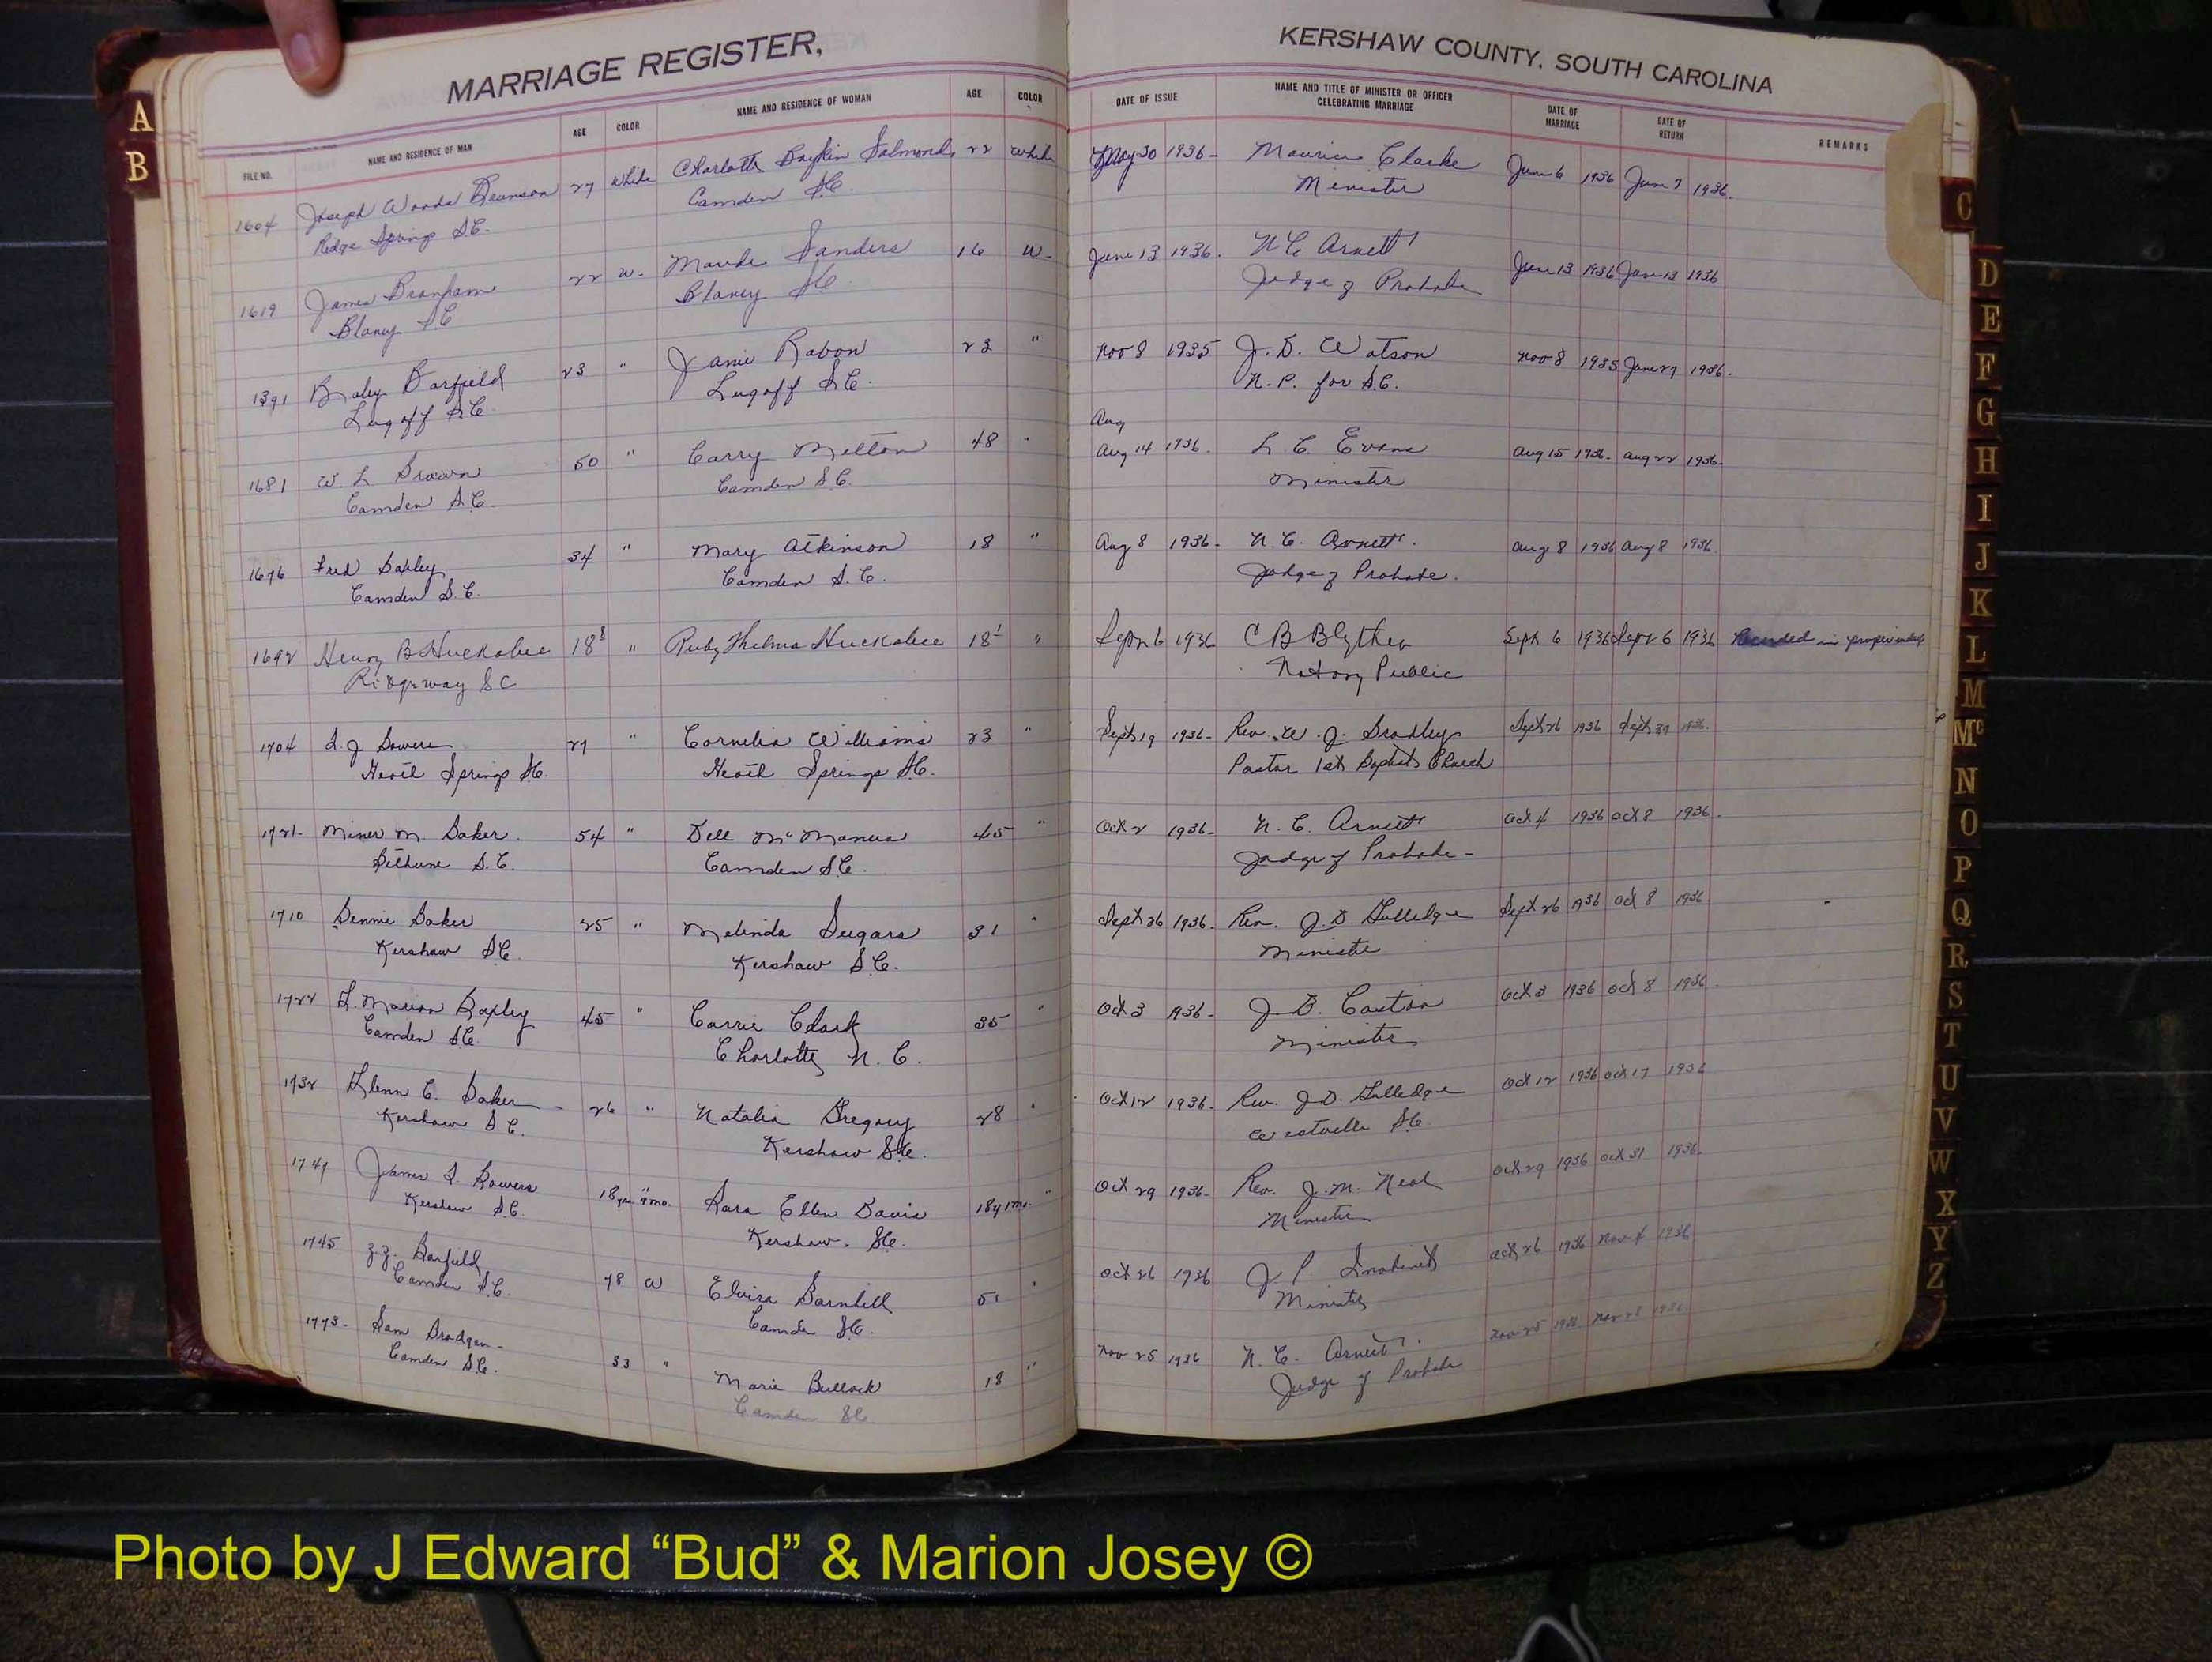 MARRIAGE REGISTER,
KERSHAW COUNTY, SOUTH CAROLINA
A
B
FILE NO.
NAME AND RESIDENCE OF MAN
AGE
COLOR
NAME AND RESIDENCE OF WOMAN
AGE
COLOR
DATE OF ISSUE
NAME AND TITLE OF MINISTER OR OFFICER
CELEBRATING MARRIAGE
DATE OF
MARRIAGE
DATE OF
RETURN
REMARKS
1604 Joseph Woods Brunson 27 White Charlotte Boykin Salmond 22 White May 30 1936- Maurice Clarke June 6 1936 June 7 1936.
Ridge Springs S.C. Camden S.C. Minister
1619 James Branham 22 W. Maude Sanders 16 W- June 13 1936. N C Arnett June 13 1936 June 13 1936
Blaney S.C Blaney S.C Judge of Probate
1391 Raley Barfield 23 " Janie Rabon 23 " Nov 8 1935 J. D. Watson Nov 8 1935 June 27 1936.
Lugoff S.C. Lugoff S.C. N.P. for S.C.
Aug
1681 W. L Brown 50 " Carry Melton 48 " Aug 14 1936. L C. Evans Aug 15 1936- Aug 22 1936.
Camden S.C. Camden S.C. Minister
1676 Fred Baxley 34 " Mary Atkinson 18 " Aug 8 1936- N. C. Arnett. Aug 8 1936 Aug 8 1936
Camden S.C. Camden S.C. Judge of Probate.
1692 Henry B Huckabee 18 8 " Ruby Thelma Huckabee 18 1 " Sept 6 1936 C B Blyther Sept 6 1936 Sept 6 1936 Recorded in proper index
Ridgeway SC Notary Public
1704 Bowers 27 " Cornelia Williams 23 " Sept 19 1936- Rev. W. J. Bradley Sept 26 1936 Sept 30 1936.
Heath Springs S.C. Heath Springs S.C. Pastor 1st Baptist Church
1721- Miner M. Baker. 54 " Dell McManus 45 " Oct 2 1936- N. C. Arnett Oct 4 1936 Oct 8 1936.
Bethune S.C. Camden S.C. Judge of Probate-
1710 Bennie Baker 25 " Melinda Seegars 31 " Sept 26 1936. Rev. J. D. Gulledge Sept 26 1936 Oct 8 1936.
Kershaw S.C. Kershaw S.C. Minister
1722 Marion Baxley 45 " Carrie Clark 35 " Oct 3 1936- J. B. Caston Oct 3 1936 Oct 8 1936.
Camden S.C. Charlotte N. C. Minister
1732 Glenn C. Baker - 26 " Natalia Gregory 28 " Oct 12 1936. Rev. J.D. Gulledge Oct 12 1936 Oct 17 1936
Kershaw S.C. Kershaw S.C. Westville S.C.
1747 James Bowers 18 yrs. 9 mo. " Sara Ellen Davis 18 y 1 mo. " Oct 29 1936- Rev. J. M. Neal Oct 29 1936 Oct 31 1936.
Kershaw S.C. Kershaw. S.C. Minister
1745 Z.Z. Barfield 78 W Elvira Barnhill 51 " Oct 26 1936 J. P. Oct 26 1936 Nov 4 1936
Camden S.C. Camden S.C. Minister
1773- Sam Bradgen- 33 " Marie Bullock 18 " Nov 25 1936 N. C. Arnett. Nov 25 1936 Nov 28 1936
Camden S.C. Camden S.C. Judge of Probate
C
D
E
F
G
H
I
J
K
L
M
Mc
N
O
P
Q
R
S
T
U
V
W
X
Y
Z
Photo by J Edward “Bud” & Marion Josey ©